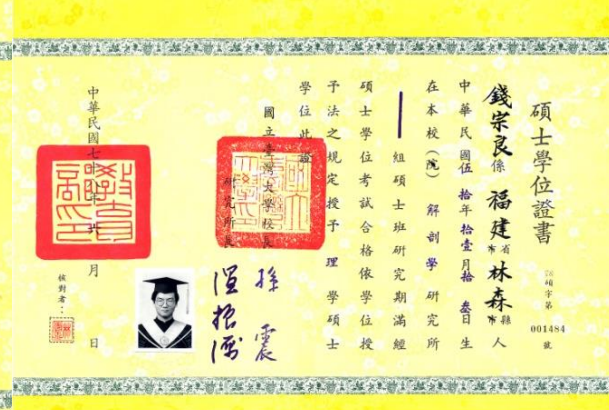 碩士學位證書
碩字第
001484
號
錢宗良係福建省市林森縣市人
中華民國伍拾年拾壹月拾叁日生
在本校(院)解剖學研究所
組碩士班研究期滿經
碩士學位考試合格依學位授
予法之規定授予理學碩士
學位此證
國立臺灣大學校長 孫震
研究所長
中華民國七十 年 月 日
核對者：